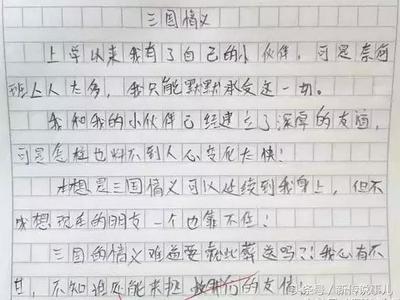 三国情义
上学以来我有了自己的小伙伴，可是奈何
班上人太多，我只能默默承受这一切。
我和我的小伙伴已经建立了深厚的友谊，
可是怎样也料不到人心变化太快！
本想是三国情义可以延续到我身上，但不
成想现在的朋友一个也靠不住！
三国的情义难道要就此葬送吗？！我心有不
甘，不知谁还能来拯救我们的友情！
头条号／新传说事儿